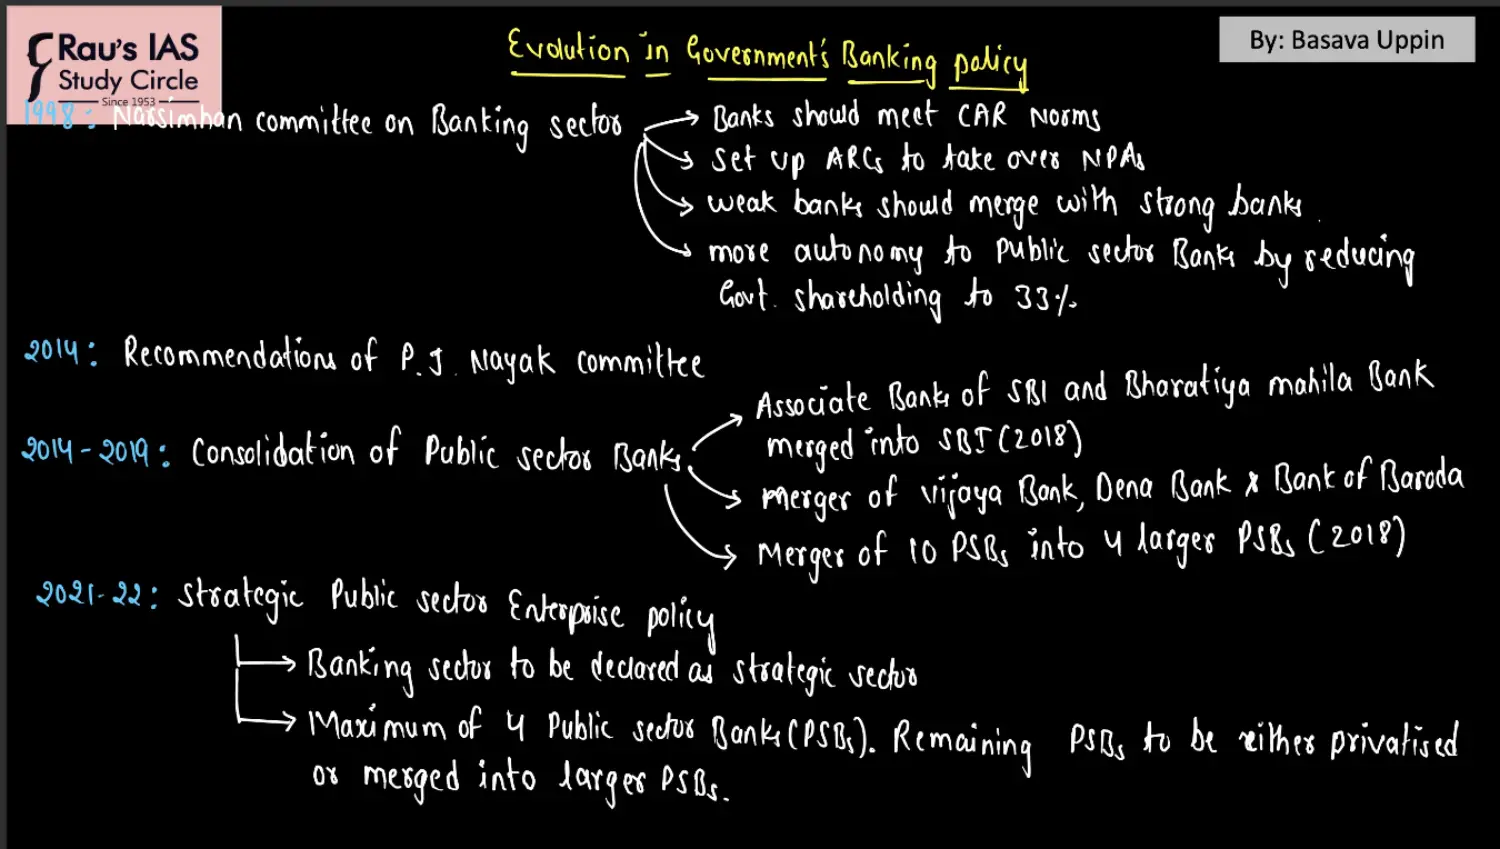 Rau's IAS
Study Circle
Since 1953
By: Basava Uppin
Evolution in Government's Banking policy
1998: Narsimhan committee on Banking sector
Banks should meet CAR Norms
Set up ARCs to take over NPAs
weak banks should merge with strong banks.
more autonomy to Public sector Banks by reducing
Govt. shareholding to 33%
2014: Recommendations of P.J. Nayak committee
2014-2019: Consolidation of Public sector Banks
Associate Banks of SBI and Bharatiya mahila Bank
merged into SBI (2018)
Merger of Vijaya Bank, Dena Bank & Bank of Baroda
Merger of 10 PSBs into 4 larger PSBs (2018)
2021-22: Strategic Public sector Enterprise policy
Banking sector to be declared as strategic sector
Maximum of 4 Public sector Banks (PSBs). Remaining PSBs to be either privatised
or merged into larger PSBs.